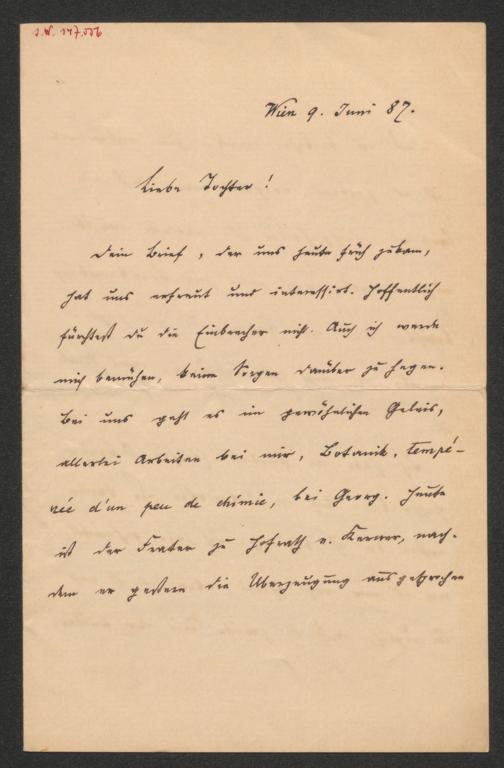 I.N. 147,556
Wien 9. Juni 87.
Liebe Tochter!
Dein Brief, der uns heute früh zukam,
hat uns erfreut und interessirt. Hoffentlich
fürchtest du die Einbrecher nicht. Auch ich werde
mich bemühen, keine Sorgen darüber zu hegen.
Bei uns geht es im gewöhnlichen Geleis,
allerlei Arbeiten bei mir, Botanik, tempé-
rée d'un peu de chimie, bei Georg. Heute
ist der Frater zu Hofrath v. Kerner, nach-
dem er gestern die Überzeugung ausgesprochen